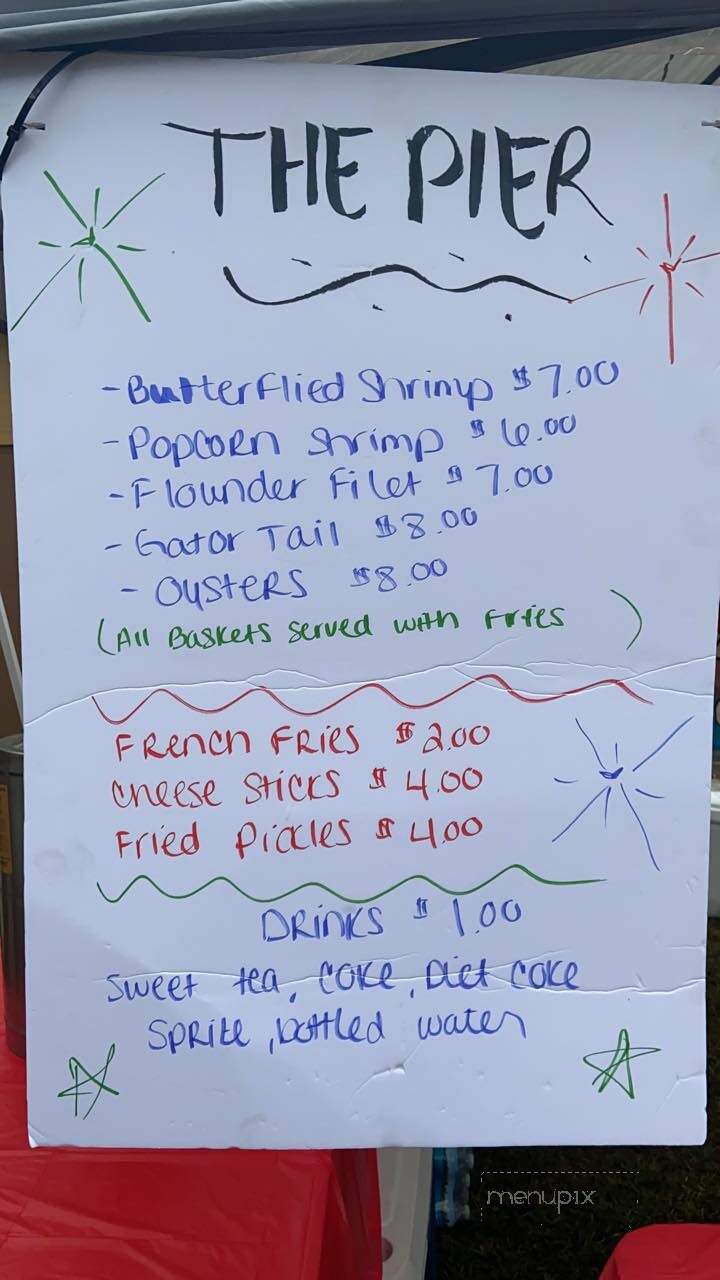 THE PIER
- Butterflied Shrimp $7.00
- Popcorn Shrimp $6.00
- Flounder Filet $7.00
- Gator Tail $8.00
- Oysters $8.00
(All Baskets served with Fries)
French Fries $2.00
Cheese Sticks $4.00
Fried Pickles $4.00
Drinks $1.00
Sweet tea, Coke, Diet Coke
Sprite, bottled water
menupix